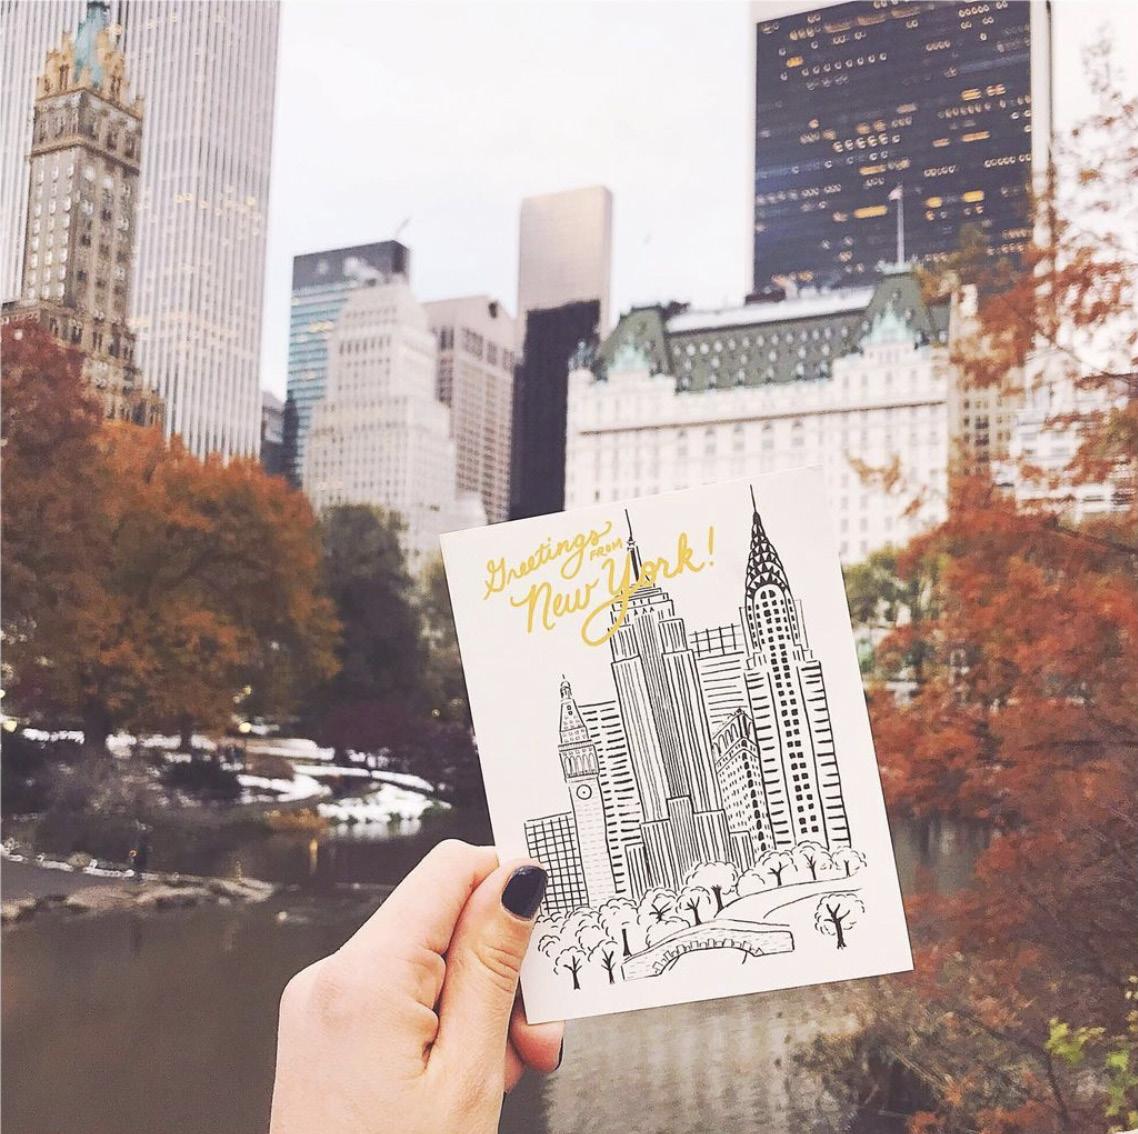 Greetings FROM
New York!